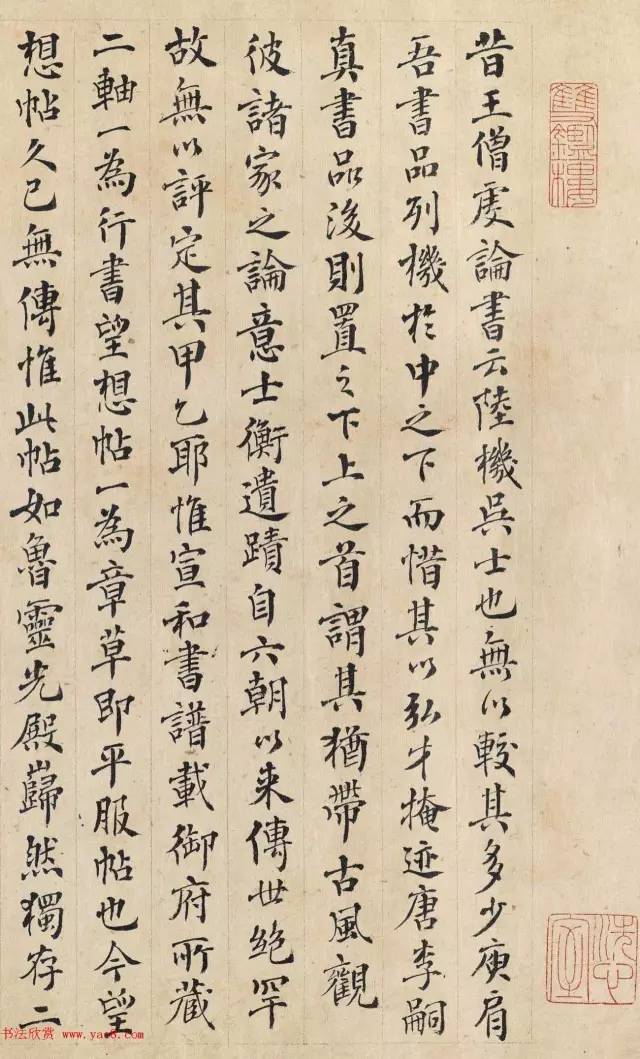 昔王僧虔論書云陸機吳士也無以較其多少庾肩
吾書品列機於中之下而惜其以弘才掩迹唐李嗣
真書品後則置之下上之首謂其猶帶古風觀
彼諸家之論意士衡遺蹟自六朝以来傳世絶罕
故無以評定其甲乙耶惟宣和書譜載御府所藏
二軸一為行書望想帖一為章草即平服帖也今望
想帖久已無傳惟此帖如魯靈光殿巋然獨存二
雙鑑樓
书法欣赏 www.yac8.com